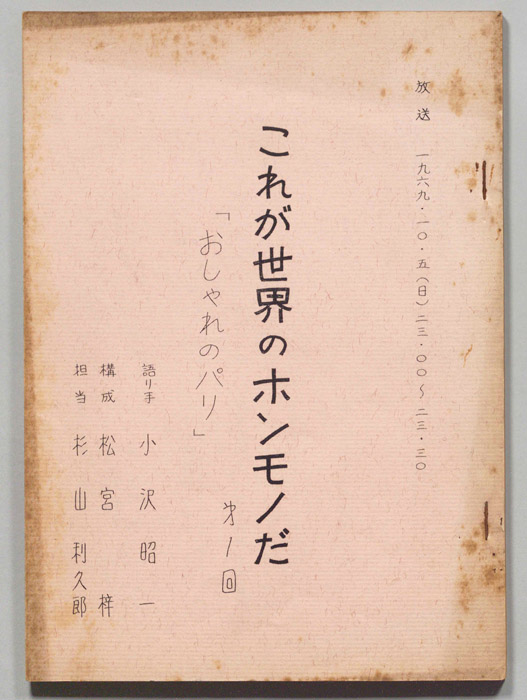 放送 一九六九・一〇・五(日)二三・〇〇〜二三・三〇
これが世界のホンモノだ
第1回
「おしゃれのパリ」
語り手 小沢昭一
構成 松宮梓
担当 杉山利久郎